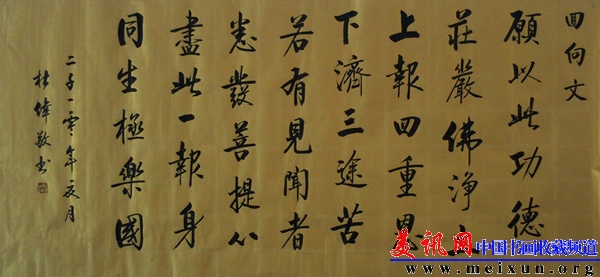 回向文
願以此功德
莊嚴佛淨土
上報四重恩
下濟三途苦
若有見聞者
悉發菩提心
盡此一報身
同生極樂國
二千一零年夏月
杜偉敬書
美讯网 中国书画收藏频道
www.meixun.org